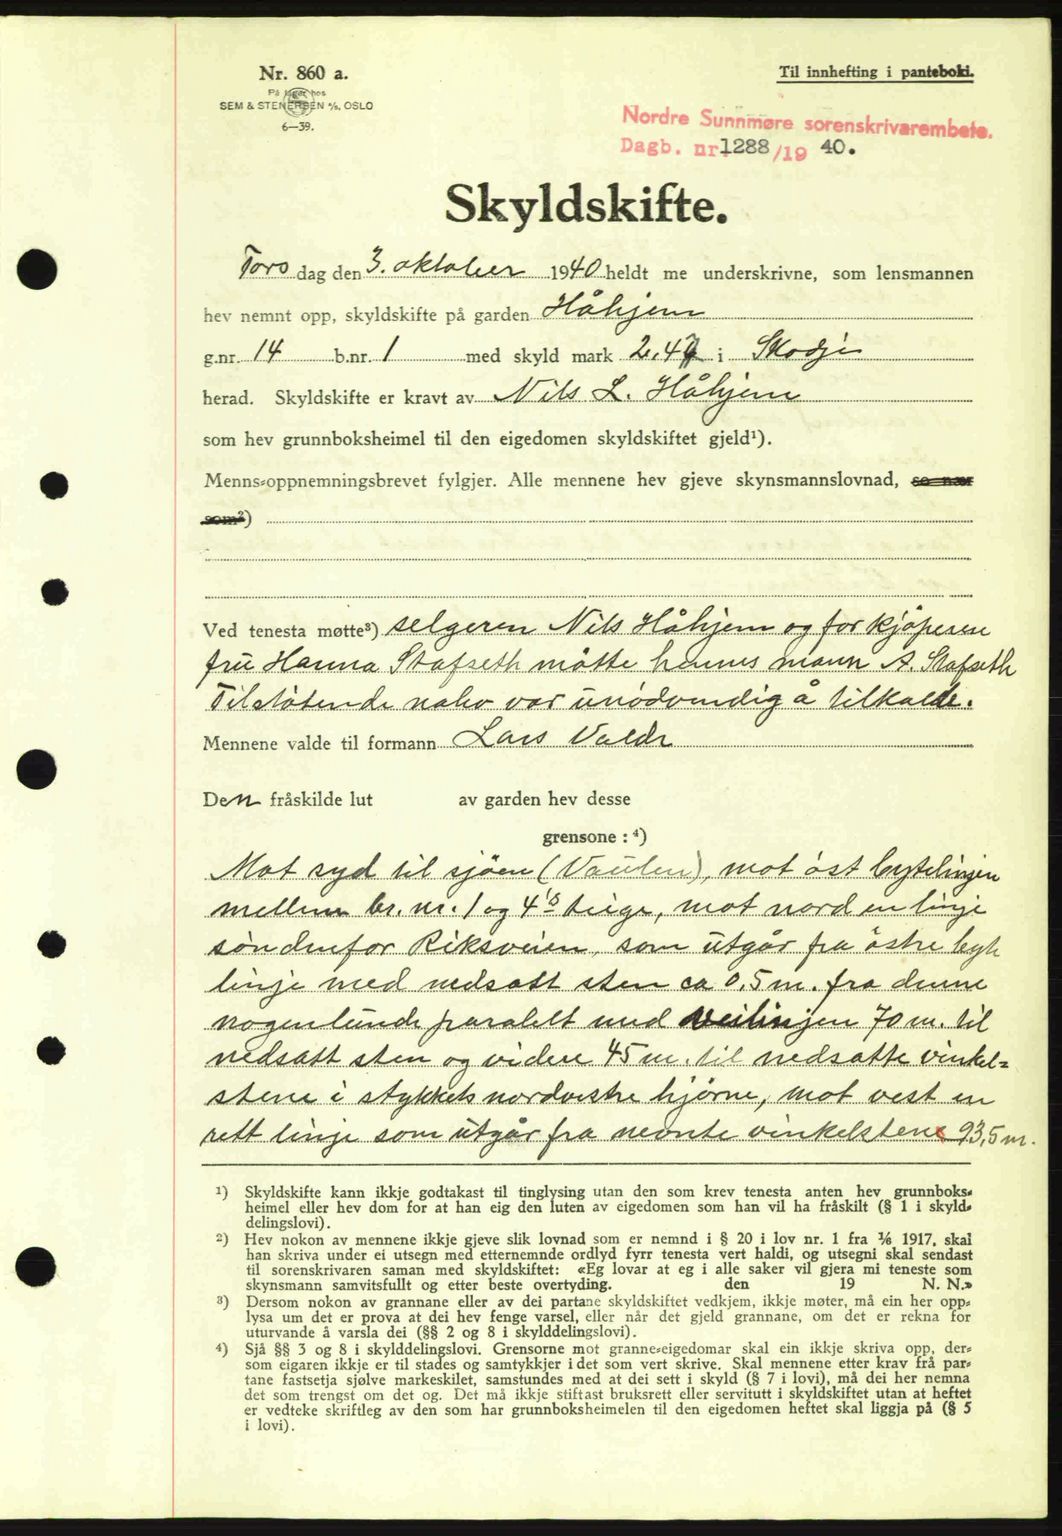 Nr. 860 a.
På lager hos
SEM & STENERSEN A/S, OSLO
6—39.
Til innhefting i panteboki.
Nordre Sunnmøre sorenskrivarembete.
Dagb. nr. 1288/19 40.
Skyldskifte.
Torsdag den 3. oktober 1940 heldt me underskrivne, som lensmannen
hev nemnt opp, skyldskifte på garden Håhjem
g.nr. 14 b.nr. 1 med skyld mark 2.47 i Skodje
herad. Skyldskifte er kravt av Nils L. Håhjem
som hev grunnboksheimel til den eigedomen skyldskiftet gjeld¹).
Menns-oppnemningsbrevet fylgjer. Alle mennene hev gjeve skynsmannslovnad, so nær
som²)
Ved tenesta møtte³) selgeren Nils Håhjem og for kjøperen
fru Hanna Stafseth møtte hennes mann A. Stafseth
Tilstøtende nabo var unødvendig å tilkalde.
Mennene valde til formann Lars Valde
Den fråskilde lut av garden hev desse
grensone : ⁴)
Mot syd til sjöen (Vaulen), mot öst bytelinjen
mellem br. nr. 1 og 4's teige, mot nord en linje
sönd​enfor Riksveien, som utgår fra östre byt
linje med nedsatt sten ca 0,5 m. fra denne
nogenlunde paralelt med veilinjen 70 m. til
nedsatt sten og videre 45 m. til nedsatte vinkel=
stene i stykkets nordvestre hjörne, mot vest en
rett linje som utgår fra nevnte vinkelstene 93,5 m.
¹) Skyldskifte kann ikkje godtakast til tinglysing utan den som krev tenesta anten hev grunnboks-
heimel eller hev dom for at han eig den luten av eigedomen som han vil ha fråskilt (§ 1 i skyld-
delingslovi).
²) Hev nokon av mennene ikkje gjeve slik lovnad som er nemnd i § 20 i lov nr. 1 fra 1/6 1917, skal
han skriva under ei utsegn med etternemnde ordlyd fyrr tenesta vert haldi, og utsegni skal sendast
til sorenskrivaren saman med skyldskiftet: «Eg lovar at eg i alle saker vil gjera mi teneste som
skynsmann samvitsfullt og etter beste overtyding. den 19 N. N.»
³) Dersom nokon av grannane eller av dei partane skyldskiftet vedkjem, ikkje møter, må ein her opp-
lysa um det er prova at dei hev fenge varsel, eller når det gjeld grannane, om det er rekna for
uturvande å varsla dei (§§ 2 og 8 i skylddelingslovi).
⁴) Sjå §§ 3 og 8 i skylddelingslovi. Grensorne mot granne-eigedomar skal ein ikkje skriva opp, der-
som eigaren ikkje er til stades og samtykkjer i det som vert skrive. Skal mennene etter krav frå par-
tane fastsetja sjølve markeskilet, samstundes med at dei sett i skyld (§ 7 i lovi), må dei her nemna
det som trengst om det og. Det må ikkje stiftast bruksrett eller servitutt i skyldskiftet utan at heftet
er vedteke skriftleg av den som har grunnboksheimelen til den eigedomen heftet skal liggja på (§ 5
i lovi).